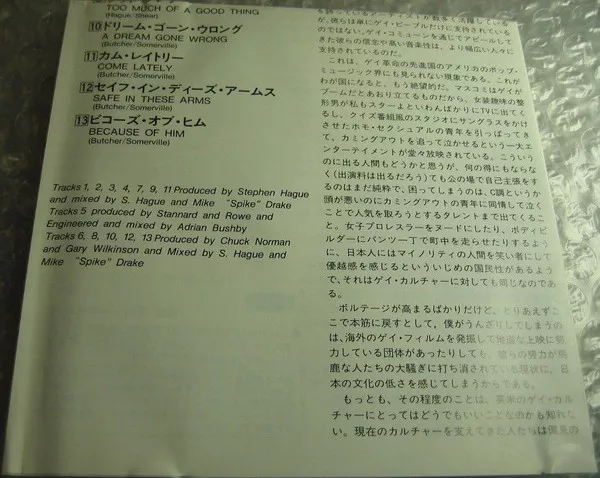 TOO MUCH OF A GOOD THING
(Hague/Shear)
10 ドリーム・ゴーン・ウロング
A DREAM GONE WRONG
(Butcher/Somerville)
11 カム・レイトリー
COME LATELY
(Butcher/Somerville)
12 セイフ・イン・ディーズ・アームス
SAFE IN THESE ARMS
(Butcher/Somerville)
13 ビコーズ・オブ・ヒム
BECAUSE OF HIM
(Butcher/Somerville)
Tracks 1, 2, 3, 4, 7, 9, 11 Produced by Stephen Hague
and mixed by S. Hague and Mike “Spike” Drake
Tracks 5 produced by Stannard and Rowe and
Engineered and mixed by Adrian Bushby
Tracks 6, 8, 10, 12, 13 Produced by Chuck Norman
and Gary Wilkinson and Mixed by S. Hague and
Mike “Spike” Drake
が、彼らは単にゲイ・ピープルだけに支持されている
のではない。ゲイ・コミューンを通じてアピールして
きた彼らの信念や高い音楽性は、より幅広い人々に
支持されているのだ。
これは、ゲイ革命の先進国のアメリカのポップ・
ミュージック界にも見られない現象である。これが
わが国になると、もう絶望的だ。マスコミはゲイが
ブームだとあおり立てるものだから、女装趣味の整
形男が私もスターよといわんばかりにTVに出てく
るし、クイズ番組風のスタジオにサングラスをかけ
させたホモ・セクシュアルの青年を引っぱってき
て、カミングアウトを迫って泣かせるという一大エ
ンターテイメントが堂々放映されている。こういう
のに出る人間もどうかと思うが、何の得にもならな
く(出演料は出るだろう)ても公の場で自己主張をす
るのはまだ純粋で、困ってしまうのは、C調というか
頭が悪いのにカミングアウトの青年に同情して泣く
ことで人気を取ろうとするタレントまで出てくるこ
と。女子プロレスラーをヌードにしたり、ボディビ
ルダーにパンツ一丁で町中を走らせたりするよう
に、日本人にはマイノリティの人間を笑い者にして
優越感を感じるといういじめの国民性があるよう
で、それはゲイ・カルチャーに対しても同じなのであ
る。
ボルテージが高まるばかりだけど、とりあえずこ
こで本筋に戻すとして、僕がうんざりしてしまうの
は、海外のゲイ・フィルムを発掘して地道な上映に努
力している団体があったりしても、彼らの努力が馬
鹿な人たちの大騒ぎに打ち消されている現状に、日
本の文化の低さを感じてしまうからである。
もっとも、その程度のことは、英米のゲイ・カル
チャーにとってはどうでもいいことなのかも知れな
い。現在のカルチャーを支えてきた人たちは偏見の